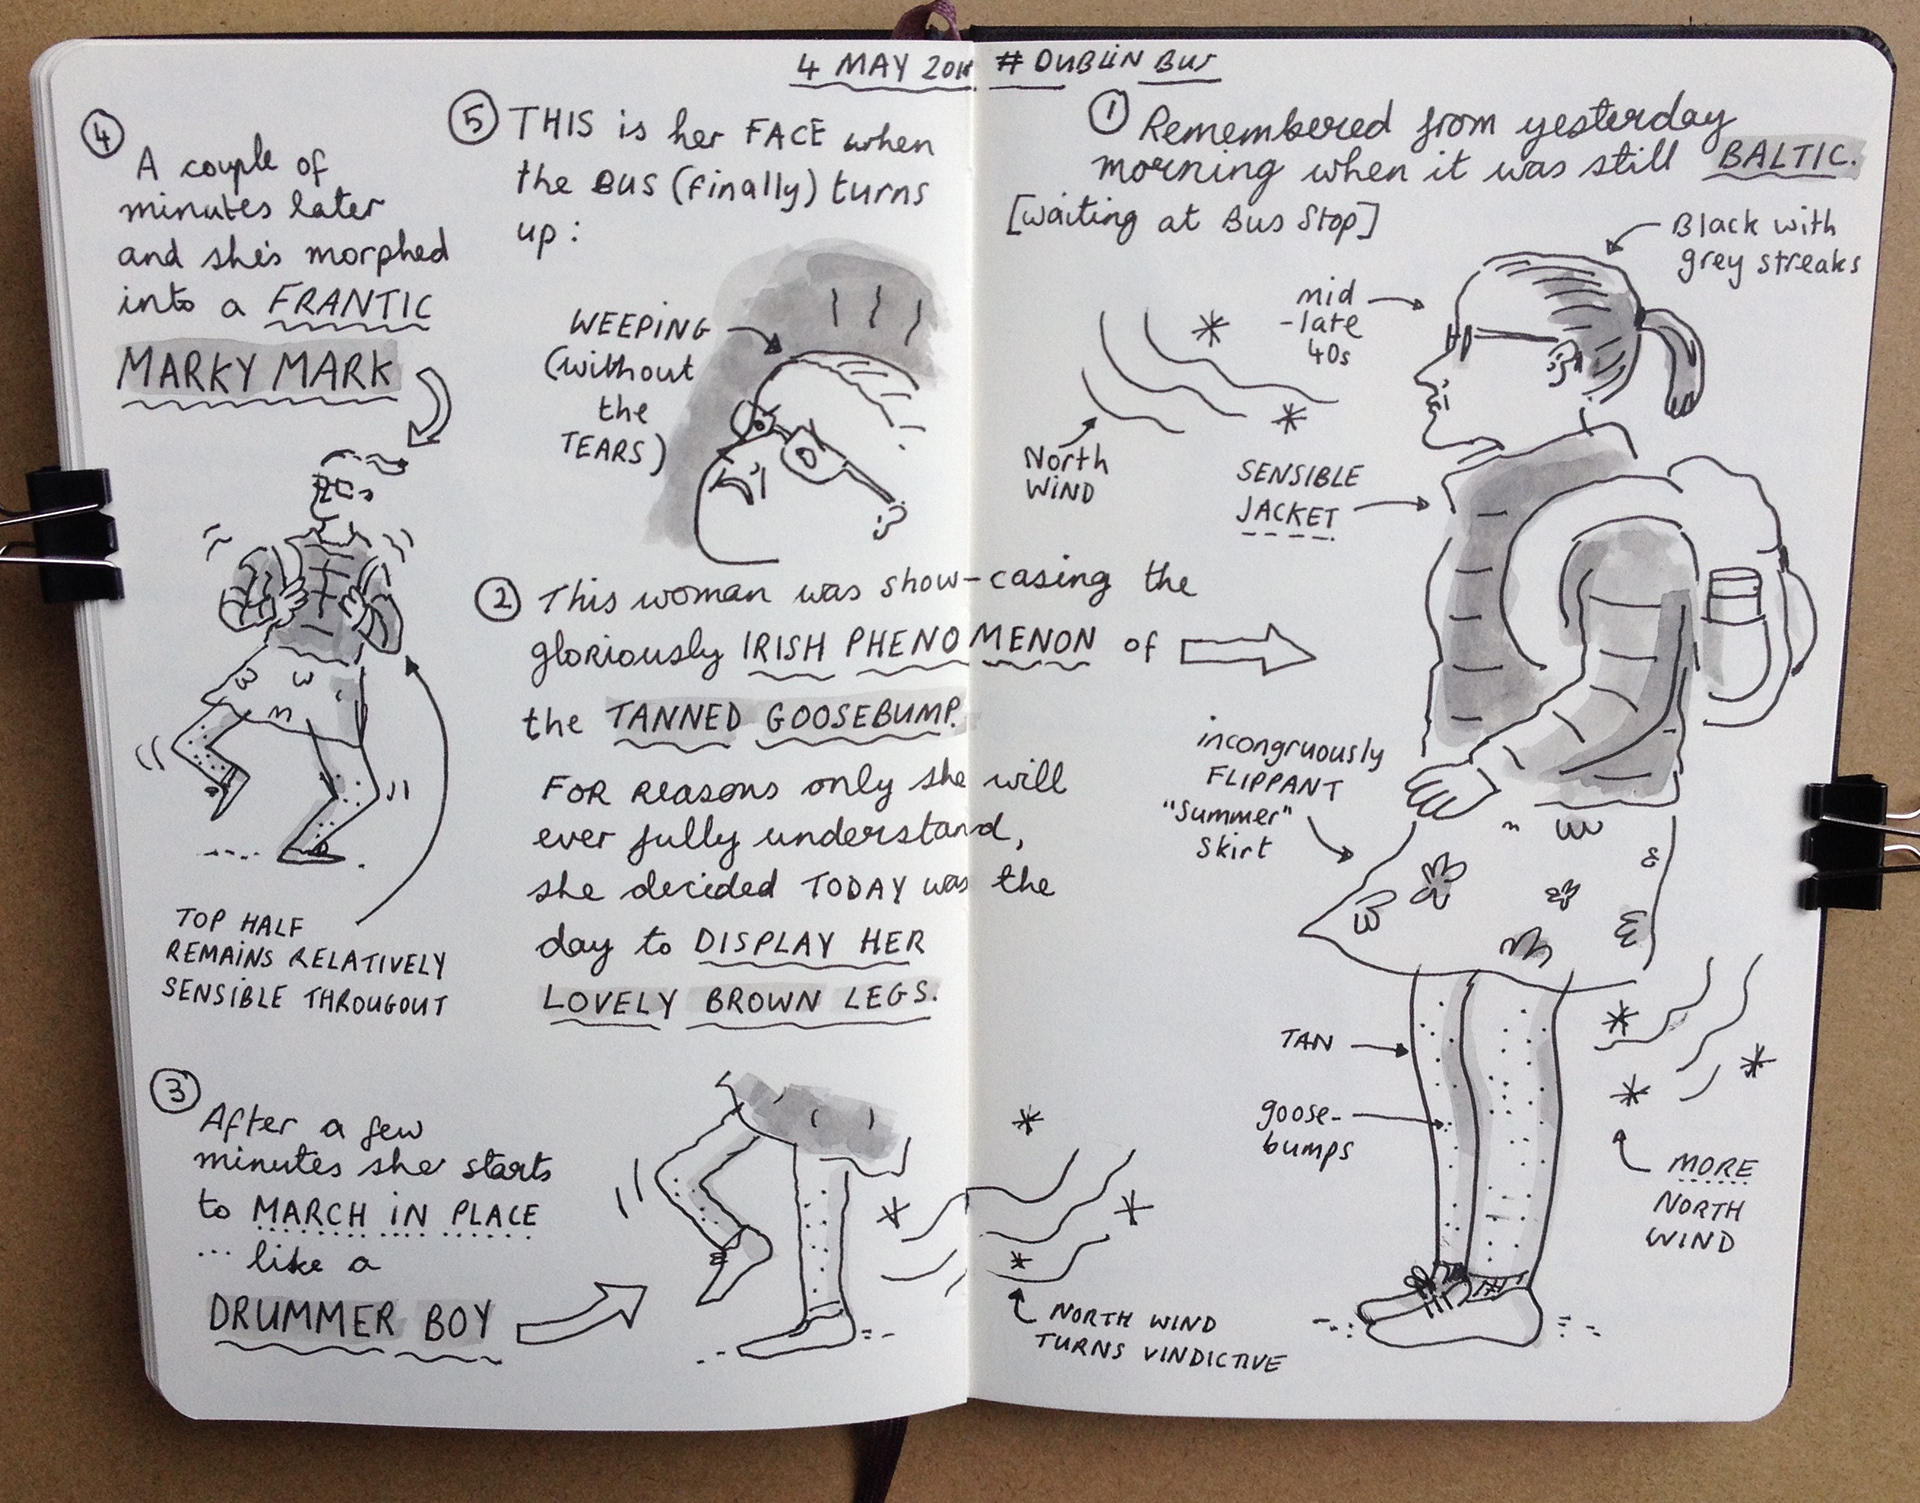 4 MAY # DUBLIN BUS
① Remembered from yesterday
morning when it was still BALTIC.
[waiting at Bus Stop]
Black with
grey streaks
mid
-late
40s
North
WIND
SENSIBLE
JACKET
incongruously
FLIPPANT
"Summer"
skirt
TAN
goose-
bumps
MORE
NORTH
WIND
② This woman was show-casing the
gloriously IRISH PHENOMENON of
the TANNED GOOSEBUMP.
FOR reasons only she will
ever fully understand,
she decided TODAY was the
day to DISPLAY HER
LOVELY BROWN LEGS.
③ After a few
minutes she starts
to MARCH IN PLACE
... like a
DRUMMER BOY
NORTH WIND
TURNS VINDICTIVE
④ A couple of
minutes later
and she's morphed
into a FRANTIC
MARKY MARK
TOP HALF
REMAINS RELATIVELY
SENSIBLE THROUGOUT
⑤ THIS is her FACE when
the BUS (finally) turns
up:
WEEPING
(without
the
TEARS)